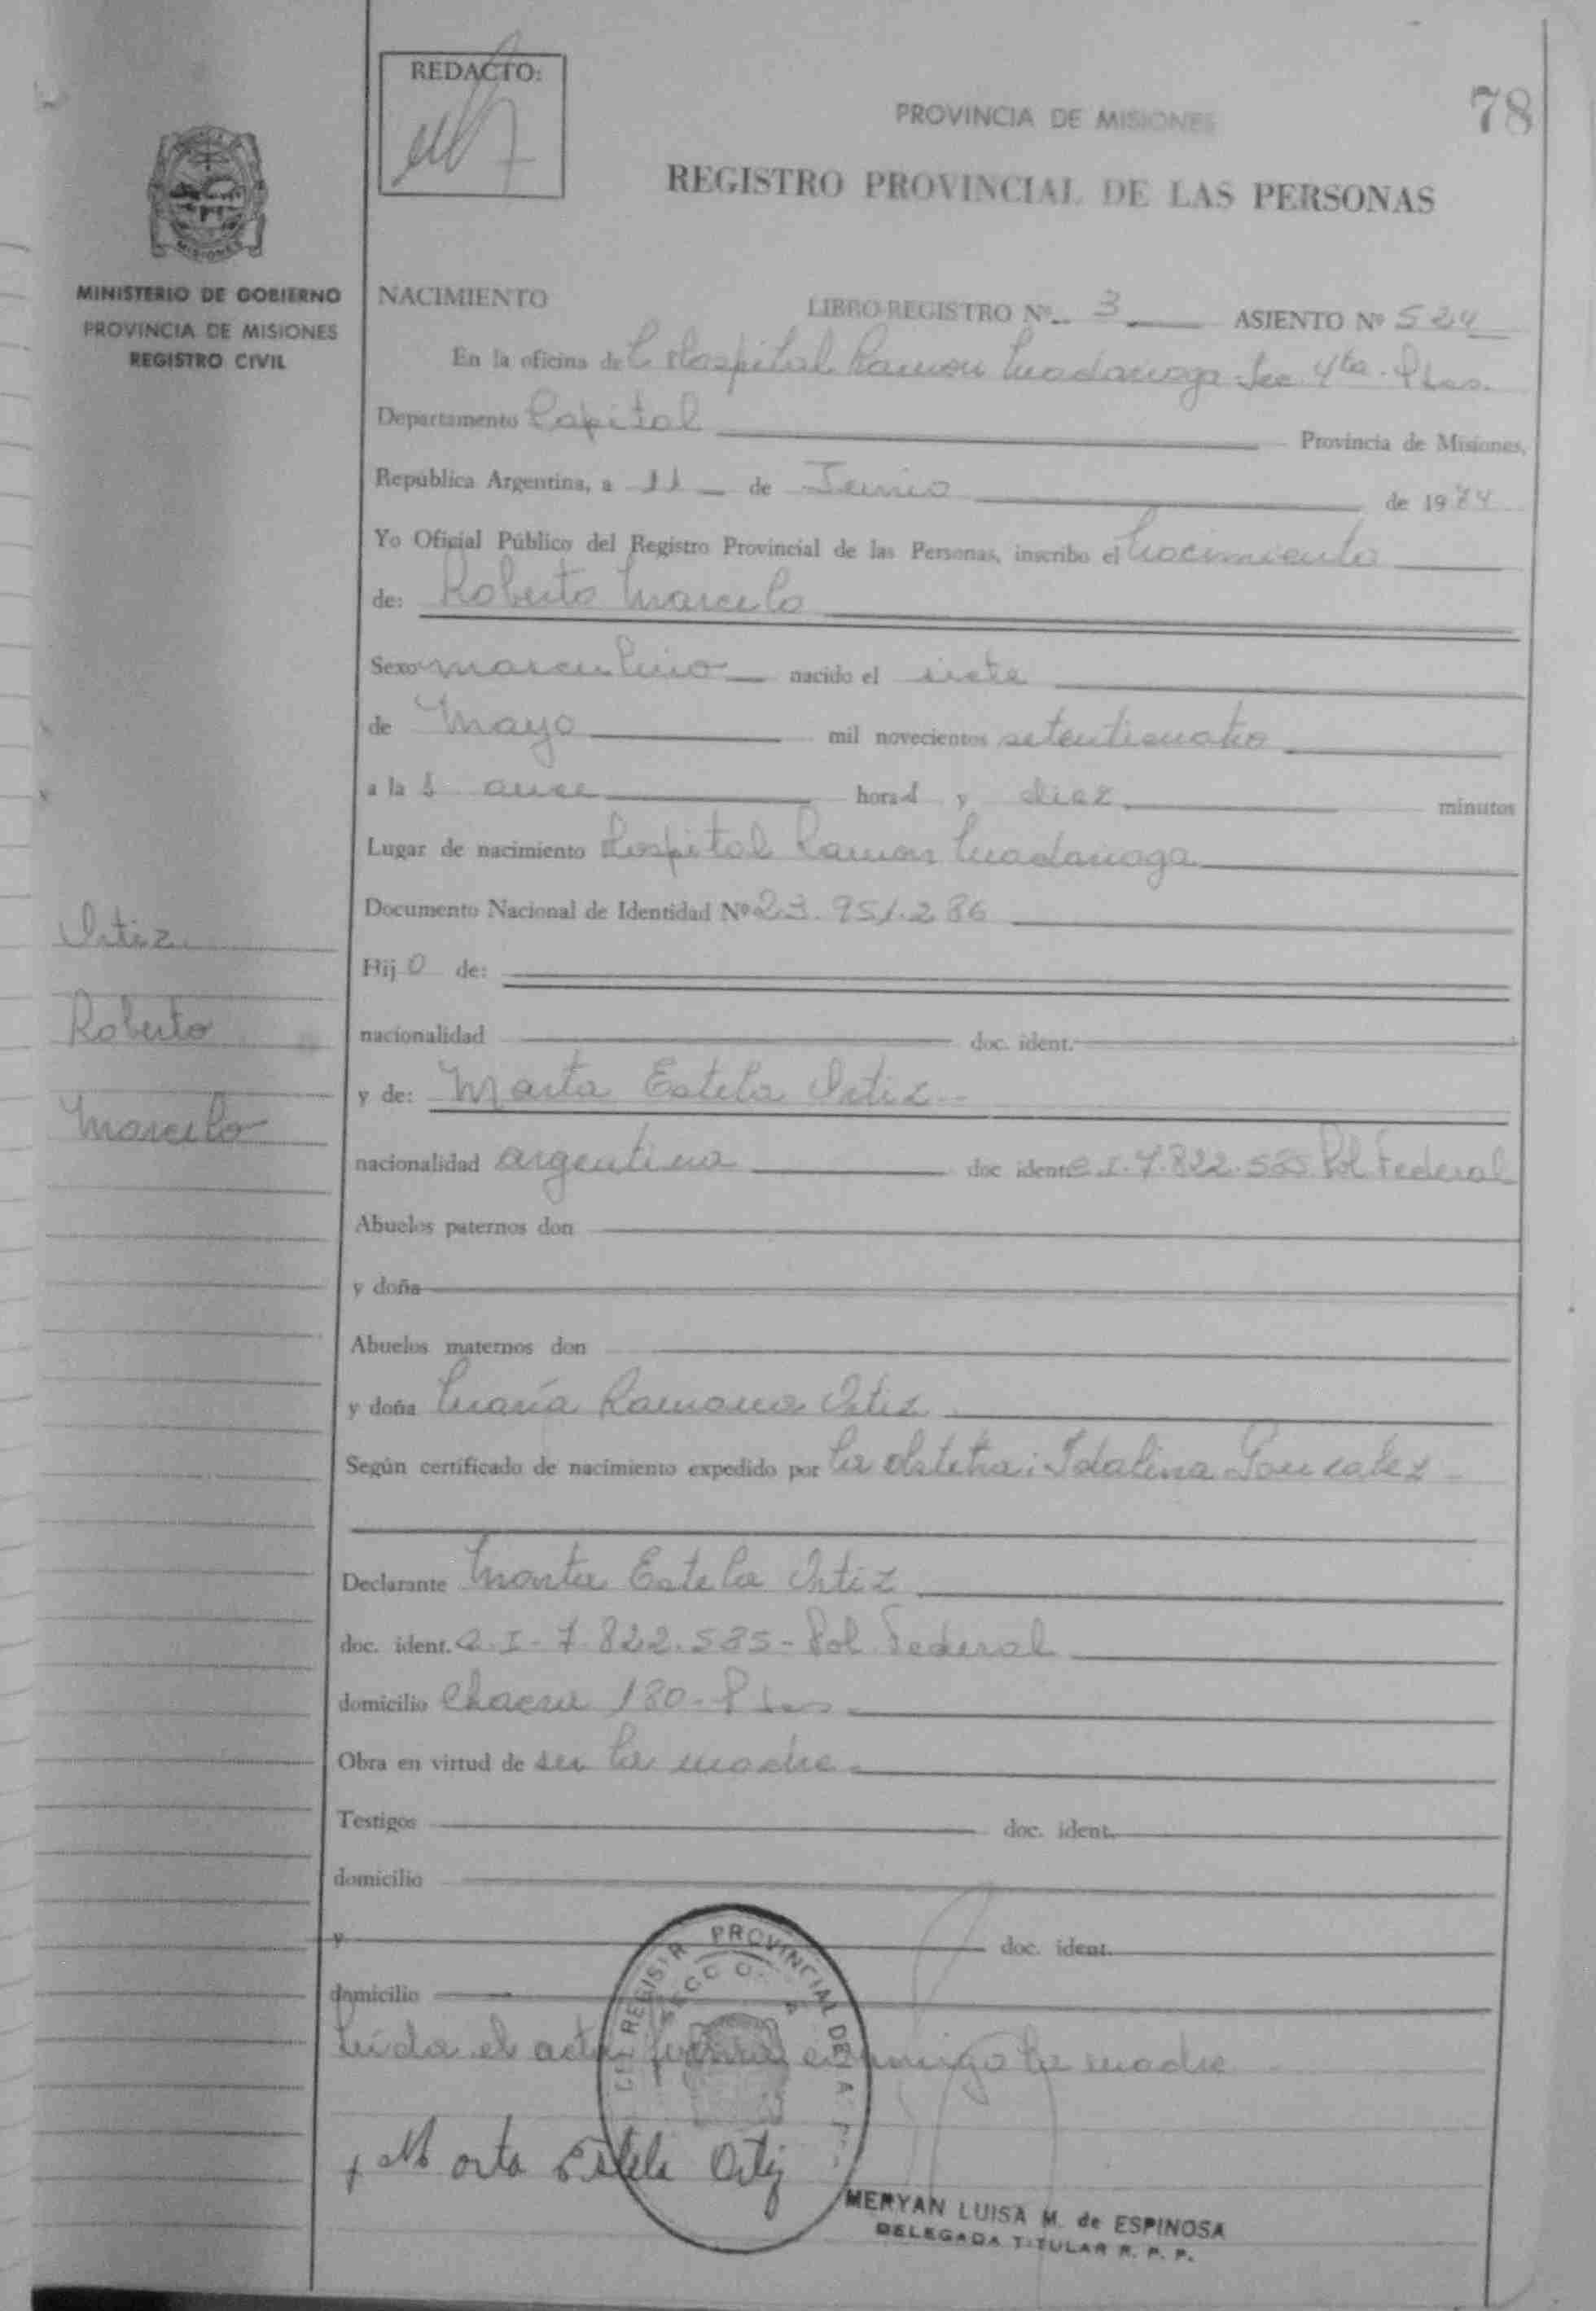 REDACTO:
78
PROVINCIA DE MISIONES
REGISTRO PROVINCIAL DE LAS PERSONAS
MISIONES
MINISTERIO DE GOBIERNO
PROVINCIA DE MISIONES
REGISTRO CIVIL
NACIMIENTO LIBRO REGISTRO Nº 3 ASIENTO Nº 524
En la oficina de l Hospital Ramon Madariaga Sec 4ta. Pdas.
Departamento Capital Provincia de Misiones,
República Argentina, a 11 de Junio de 1974
Yo Oficial Público del Registro Provincial de las Personas, inscribo el Nacimiento
de: Roberto Marcelo
Sexo masculino nacido el siete
de Mayo mil novecientos setenticuatro
a la s once hora s y diez minutos
Lugar de nacimiento Hospital Ramon Madariaga
Documento Nacional de Identidad Nº 23.951.286
Hij o de:
nacionalidad doc. ident.
y de: Marta Estela Ortiz
nacionalidad argentina doc ident C.I. 7.822.585 Pol Federal
Abuelos paternos don
y doña
Abuelos maternos don
y doña María Ramona Ortiz
Según certificado de nacimiento expedido por la obstetra: Idalina Gonzalez
Declarante Marta Estela Ortiz
doc. ident. C.I - 7.822.585 - Pol Federal
domicilio Chacra 180 - Pdas
Obra en virtud de ser la madre
Testigos doc. ident.
domicilio
y doc. ident.
domicilio
Leída el acta firma conmigo la madre
Marta Estela Ortiz
Ortiz
Roberto
Marcelo
PROVINCIAL DE
MERYAN LUISA M. de ESPINOSA
DELEGADA TITULAR R. P. P.